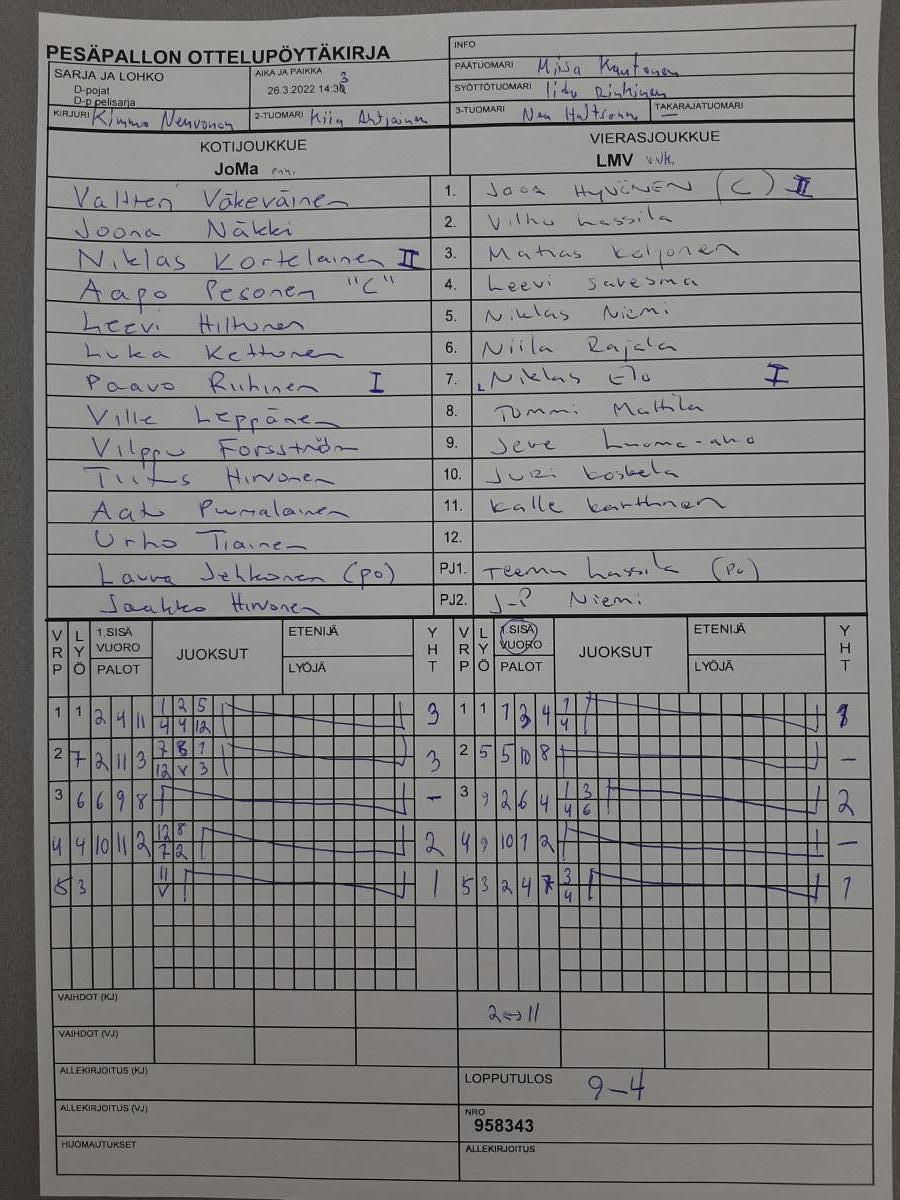 PESÄPALLON OTTELUPÖYTÄKIRJA
INFO
SARJA JA LOHKO
D-pojat
D-p pelisarja
AIKA JA PAIKKA
26.3.2022 14:33
PÄÄTUOMARI Miisa Kautonen
SYÖTTÖTUOMARI Iida Rinkinen
KIRJURI Kimmo Nenvonen
2-TUOMARI Kiia
3-TUOMARI Nea
TAKARAJATUOMARI —
KOTIJOUKKUE
JoMa pun.
VIERASJOUKKUE
LMV valk.
Valtteri Väkeväinen 1. Joca HYVÖNEN (C) II
Joona Näkki 2. Vilho Lassila
Niklas Kortelainen II 3. Matias Koljonen
Aapo Pesonen "C" 4. Leevi Saresma
Leevi Hiltunen 5. Niklas Niemi
Luka Kettunen 6. Niila Rajala
Paavo Riihinen I 7. Niklas Elo I
Ville Leppänen 8. Tommi Mattila
Vilppu Forsström 9. Jere Luoma-aho
Tiitus Hirvonen 10. Juri Koskela
Aatu Pumalainen 11. Kalle Karttunen
Urho Tiainen 12.
Laura Jehkonen (po) PJ1. Teemu Lassila (Po)
Jaakko Hirvonen PJ2. J-P Niemi
VRP LYÖ 1.SISÄ VUORO PALOT JUOKSUT ETENIJÄ LYÖJÄ YHT VRP LYÖ 1.SISÄ VUORO PALOT JUOKSUT ETENIJÄ LYÖJÄ YHT
1 2 5 1
1 1 2 4 11 3 1 1 1 3 4 1
4 4 12 4
7 8 1
2 7 2 11 3 3 2 5 5 10 8 —
12 V 3
1 3
3 6 6 9 8 — 3 9 2 6 4 2
4 6
12 8
4 4 10 11 2 2 4 9 10 1 2 —
7 2
11 3
5 3 1 5 3 2 4 7 1
V 4
VAIHDOT (KJ) 2↔11
VAIHDOT (VJ)
ALLEKIRJOITUS (KJ)
LOPPUTULOS 9–4
ALLEKIRJOITUS (VJ)
NRO
958343
HUOMAUTUKSET
ALLEKIRJOITUS